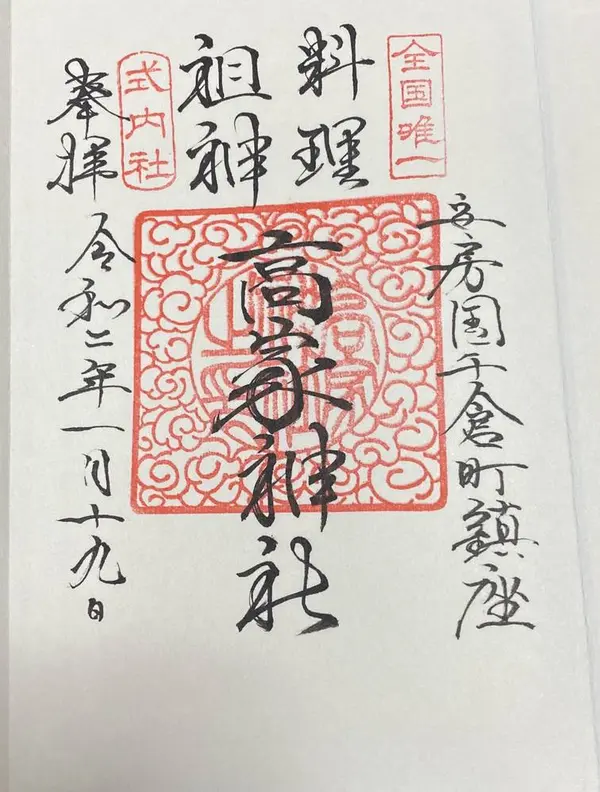 全国唯一
安房国千倉町鎮座
料理
祖神
高家神社
式内社
奉拝
令和二年一月十九日